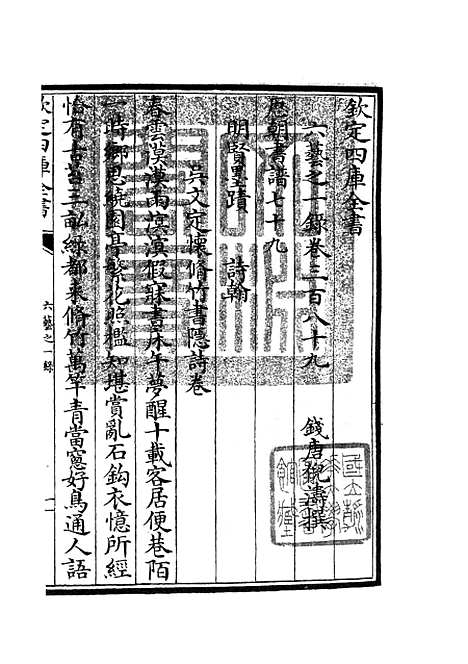 欽定四庫全書
六藝之一錄卷三百八十九
錢唐倪濤撰
歴朝書譜七十九
明賢墨蹟 詩翰
吳文定懷脩竹書隱詩卷
春雲漠漠雨溟溟假寐書牀午夢醒十載客居便巷陌
一時鄉思繞園亭繁花照檻知堪賞亂石鈎衣憶所經
恰有舌苗三畝綠都來脩竹萬竿青當窻好鳥通人語
欽定四庫全書
六藝之一錄
一